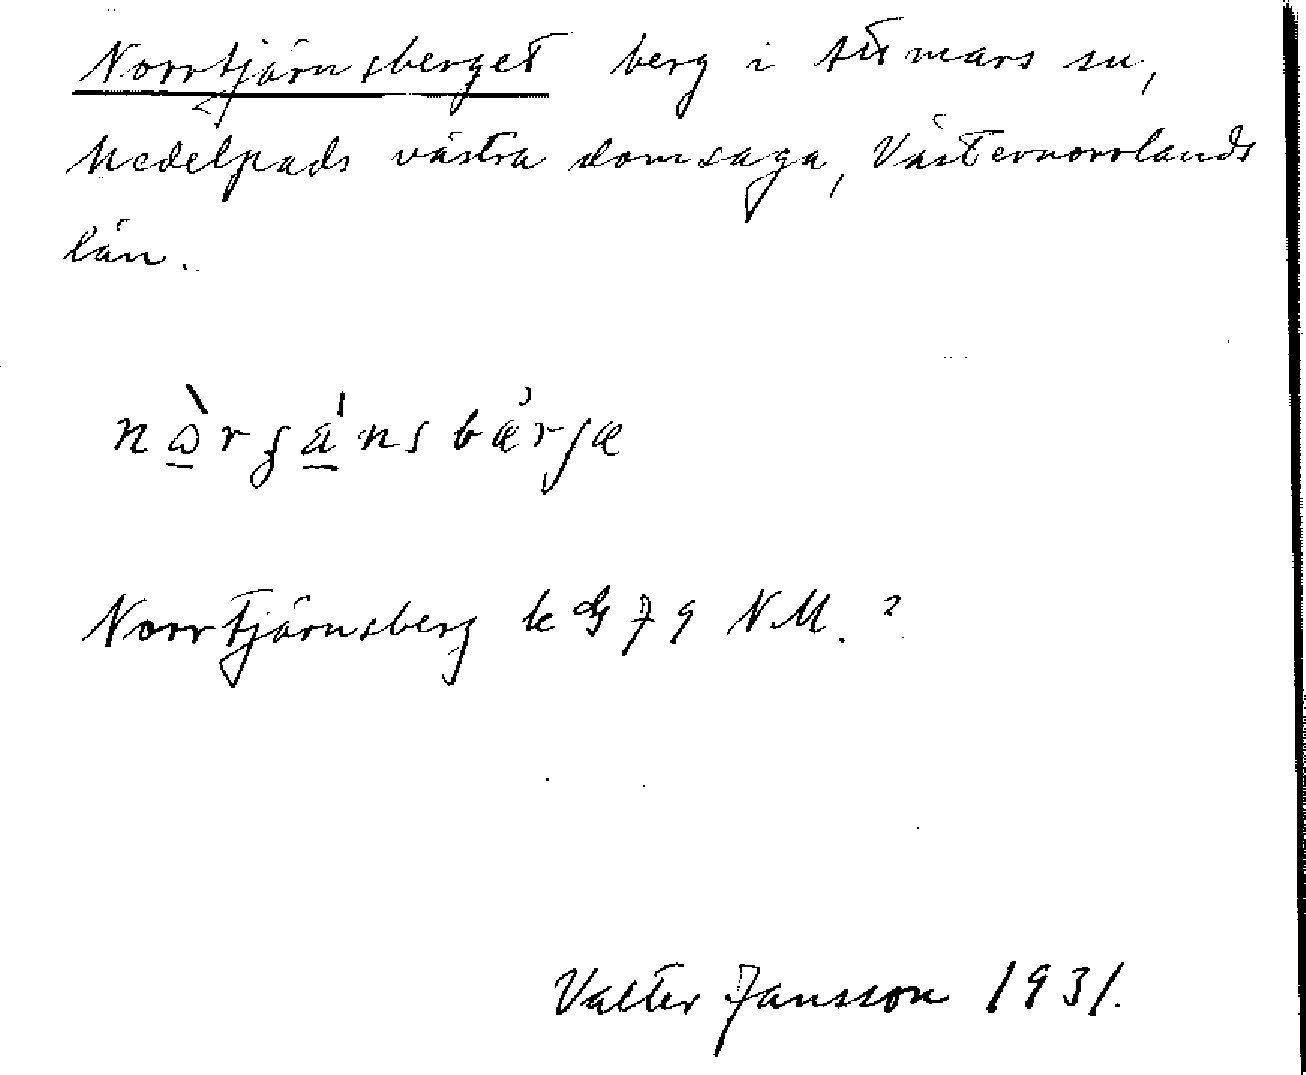 Norrtjärnsberget berg i Attmars sn,
Medelpads västra domsaga, Västernorrlands
län.
Norrtjärnsberg k G 79 NM. ?
Valter Jansson 1931.